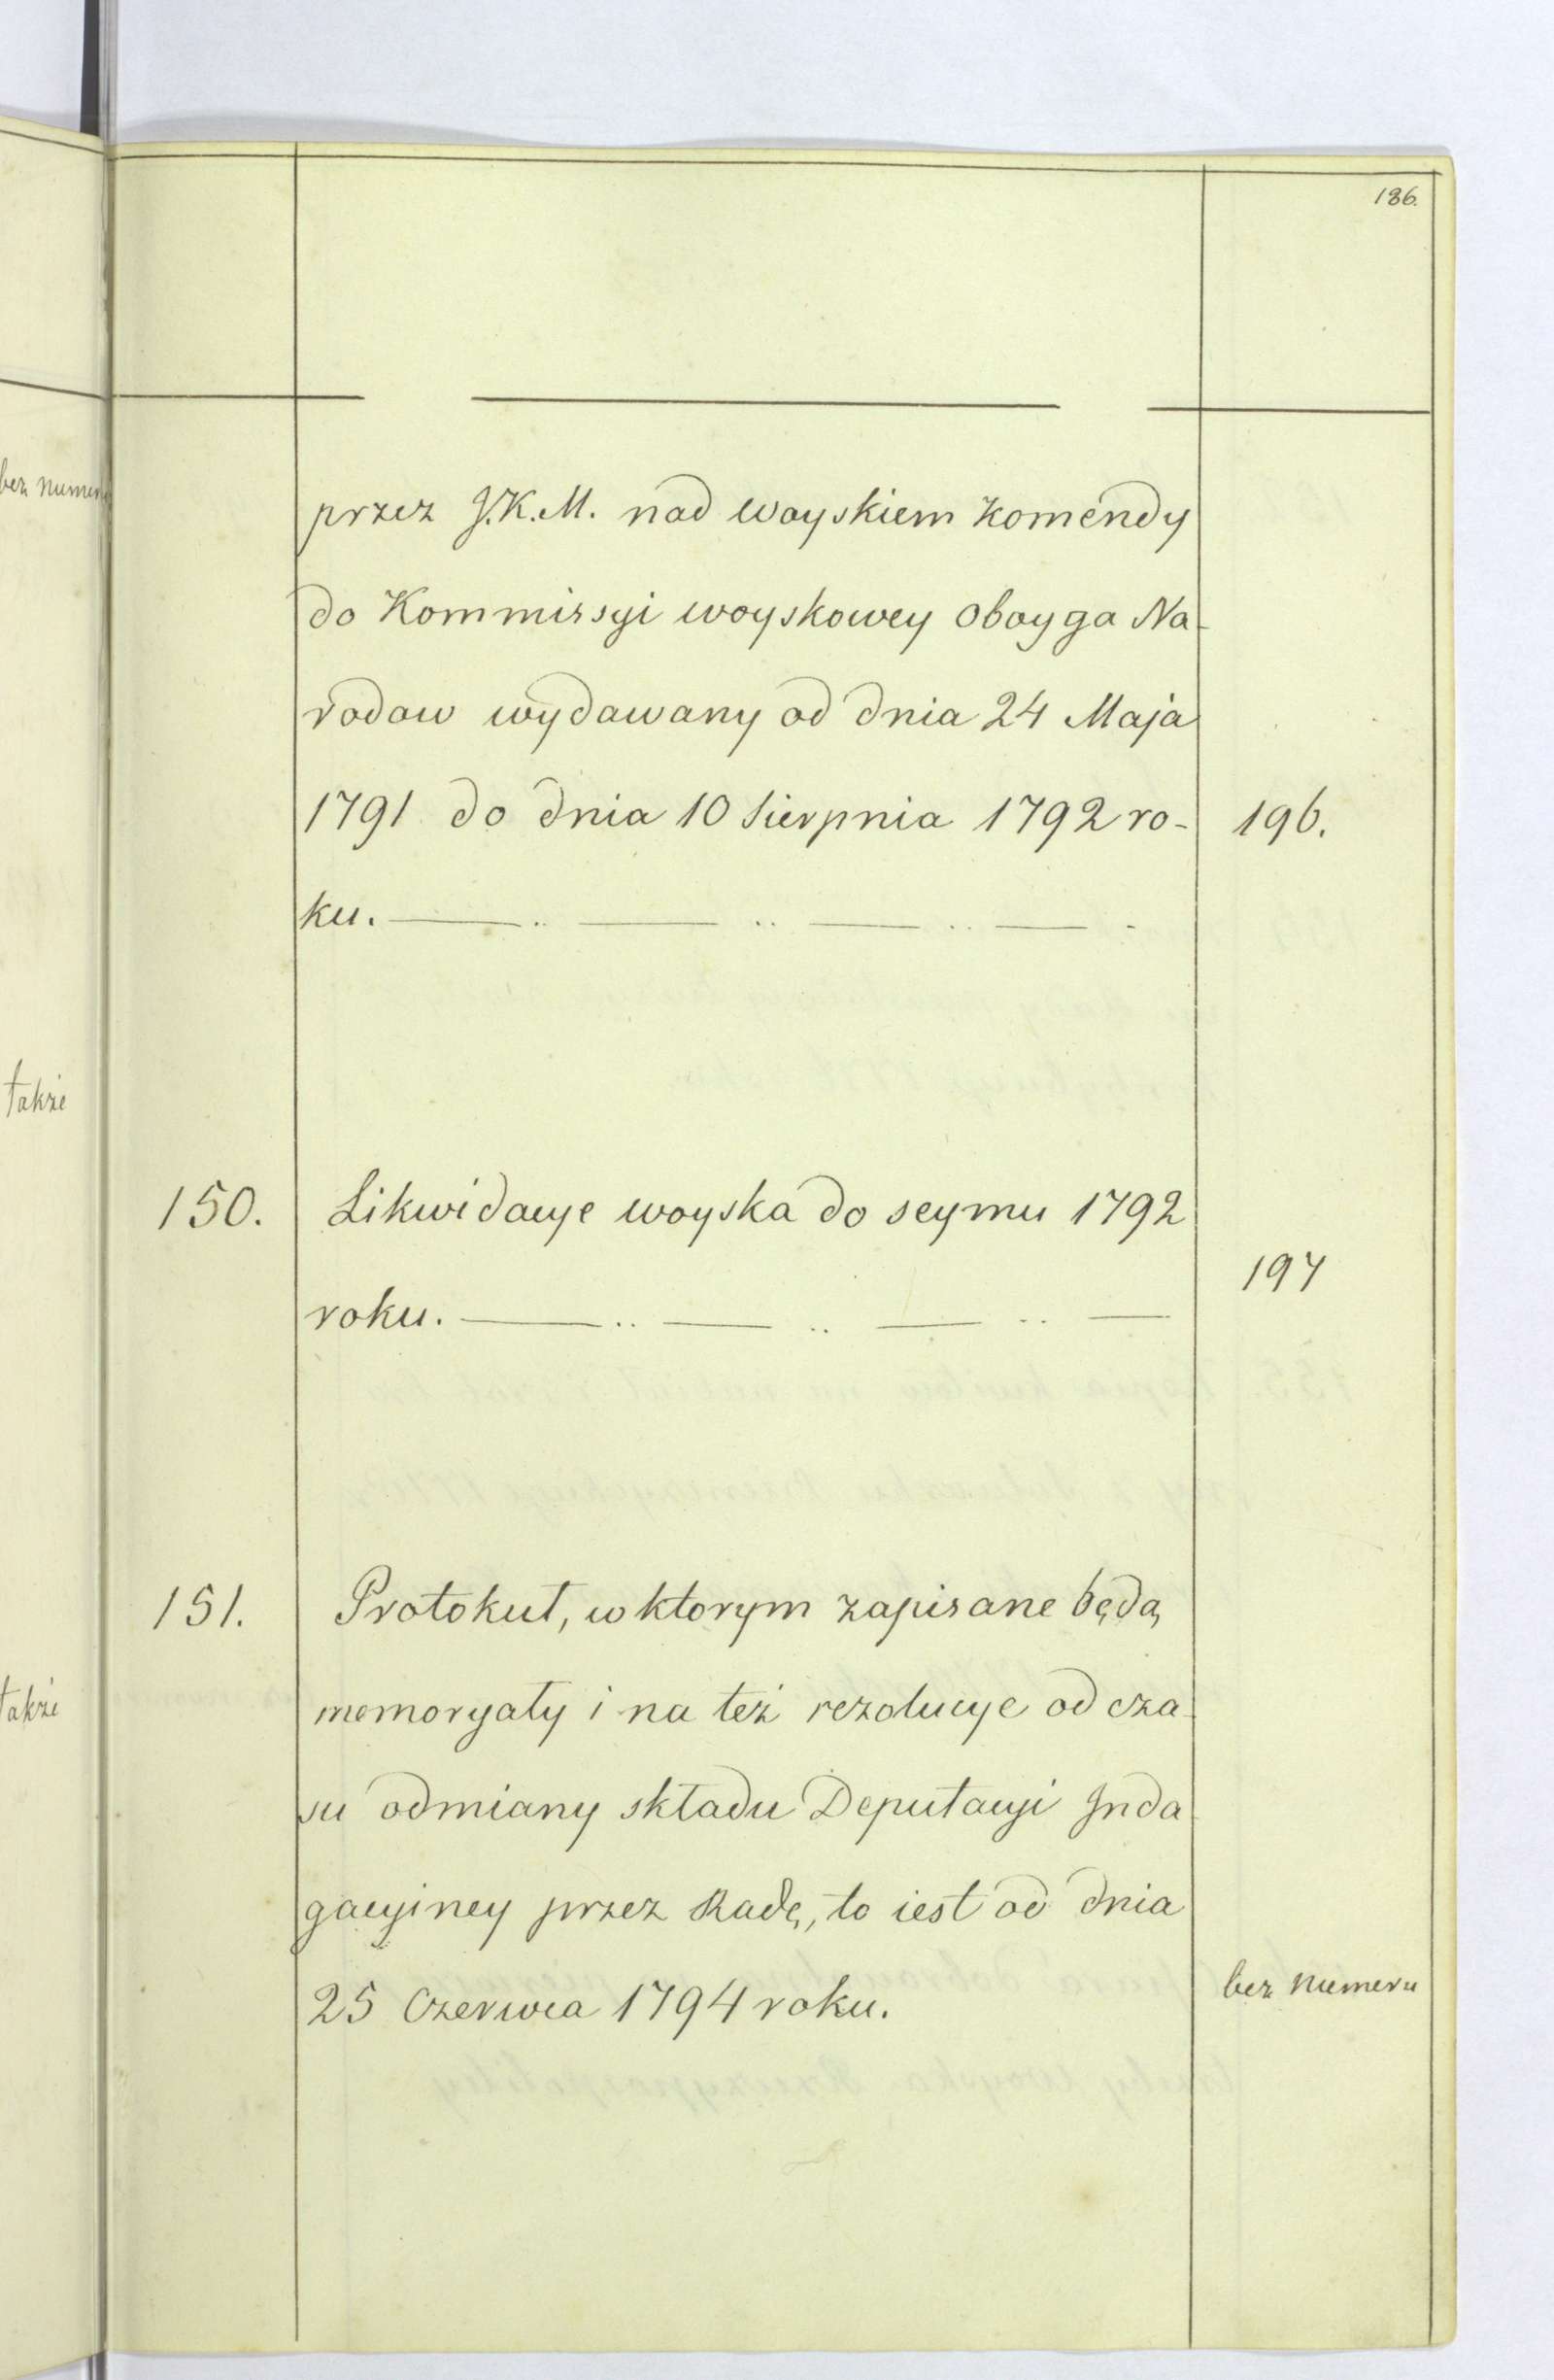 186.
bez numeru
przez J.K.M. nad woyskiem komendy
do Kommissyi woyskowey oboyga Na-
rodow wydawany od dnia 24 Maja
1791 do dnia 10 Sierpnia 1792 ro- 196.
ku.
także
150. Likwidacye woyska do seymu 1792
197
roku.
151. Protokuł, w ktorym zapisane będą
memoryały i na też rezolucye od cza-
także
su odmiany składu Deputacyi Inda-
gacyiney przez Radę, to iest od dnia
25 Czerwca 1794 roku. bez numeru